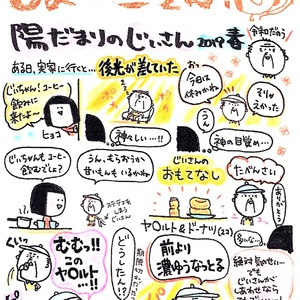 陽だまりのじいさん 2019 春
令和だのう
ある日、実家に行くと…後光が差していた
じいちゃん！コーヒー
飲みに
来たよ〜
ヒョコ
神々しい…!!
今日は
休みかね
うん
そりゃ
えかった
神の目覚め…
じいちゃんもコーヒー
飲むでしょ？
うん、もらおうかね
甘いもんもいるかね
ステテコを
しまう
じいさん
じいさんの
おもてなし
ヤクルト&ドーナツ(22)
たべんさい
ありがとう
ぐいっ
むむっ!!
この
ヤクルト…!!
どうしたん!?
前より
濃ゆうなっとる
絶対気のせい…
でも
じいさんが